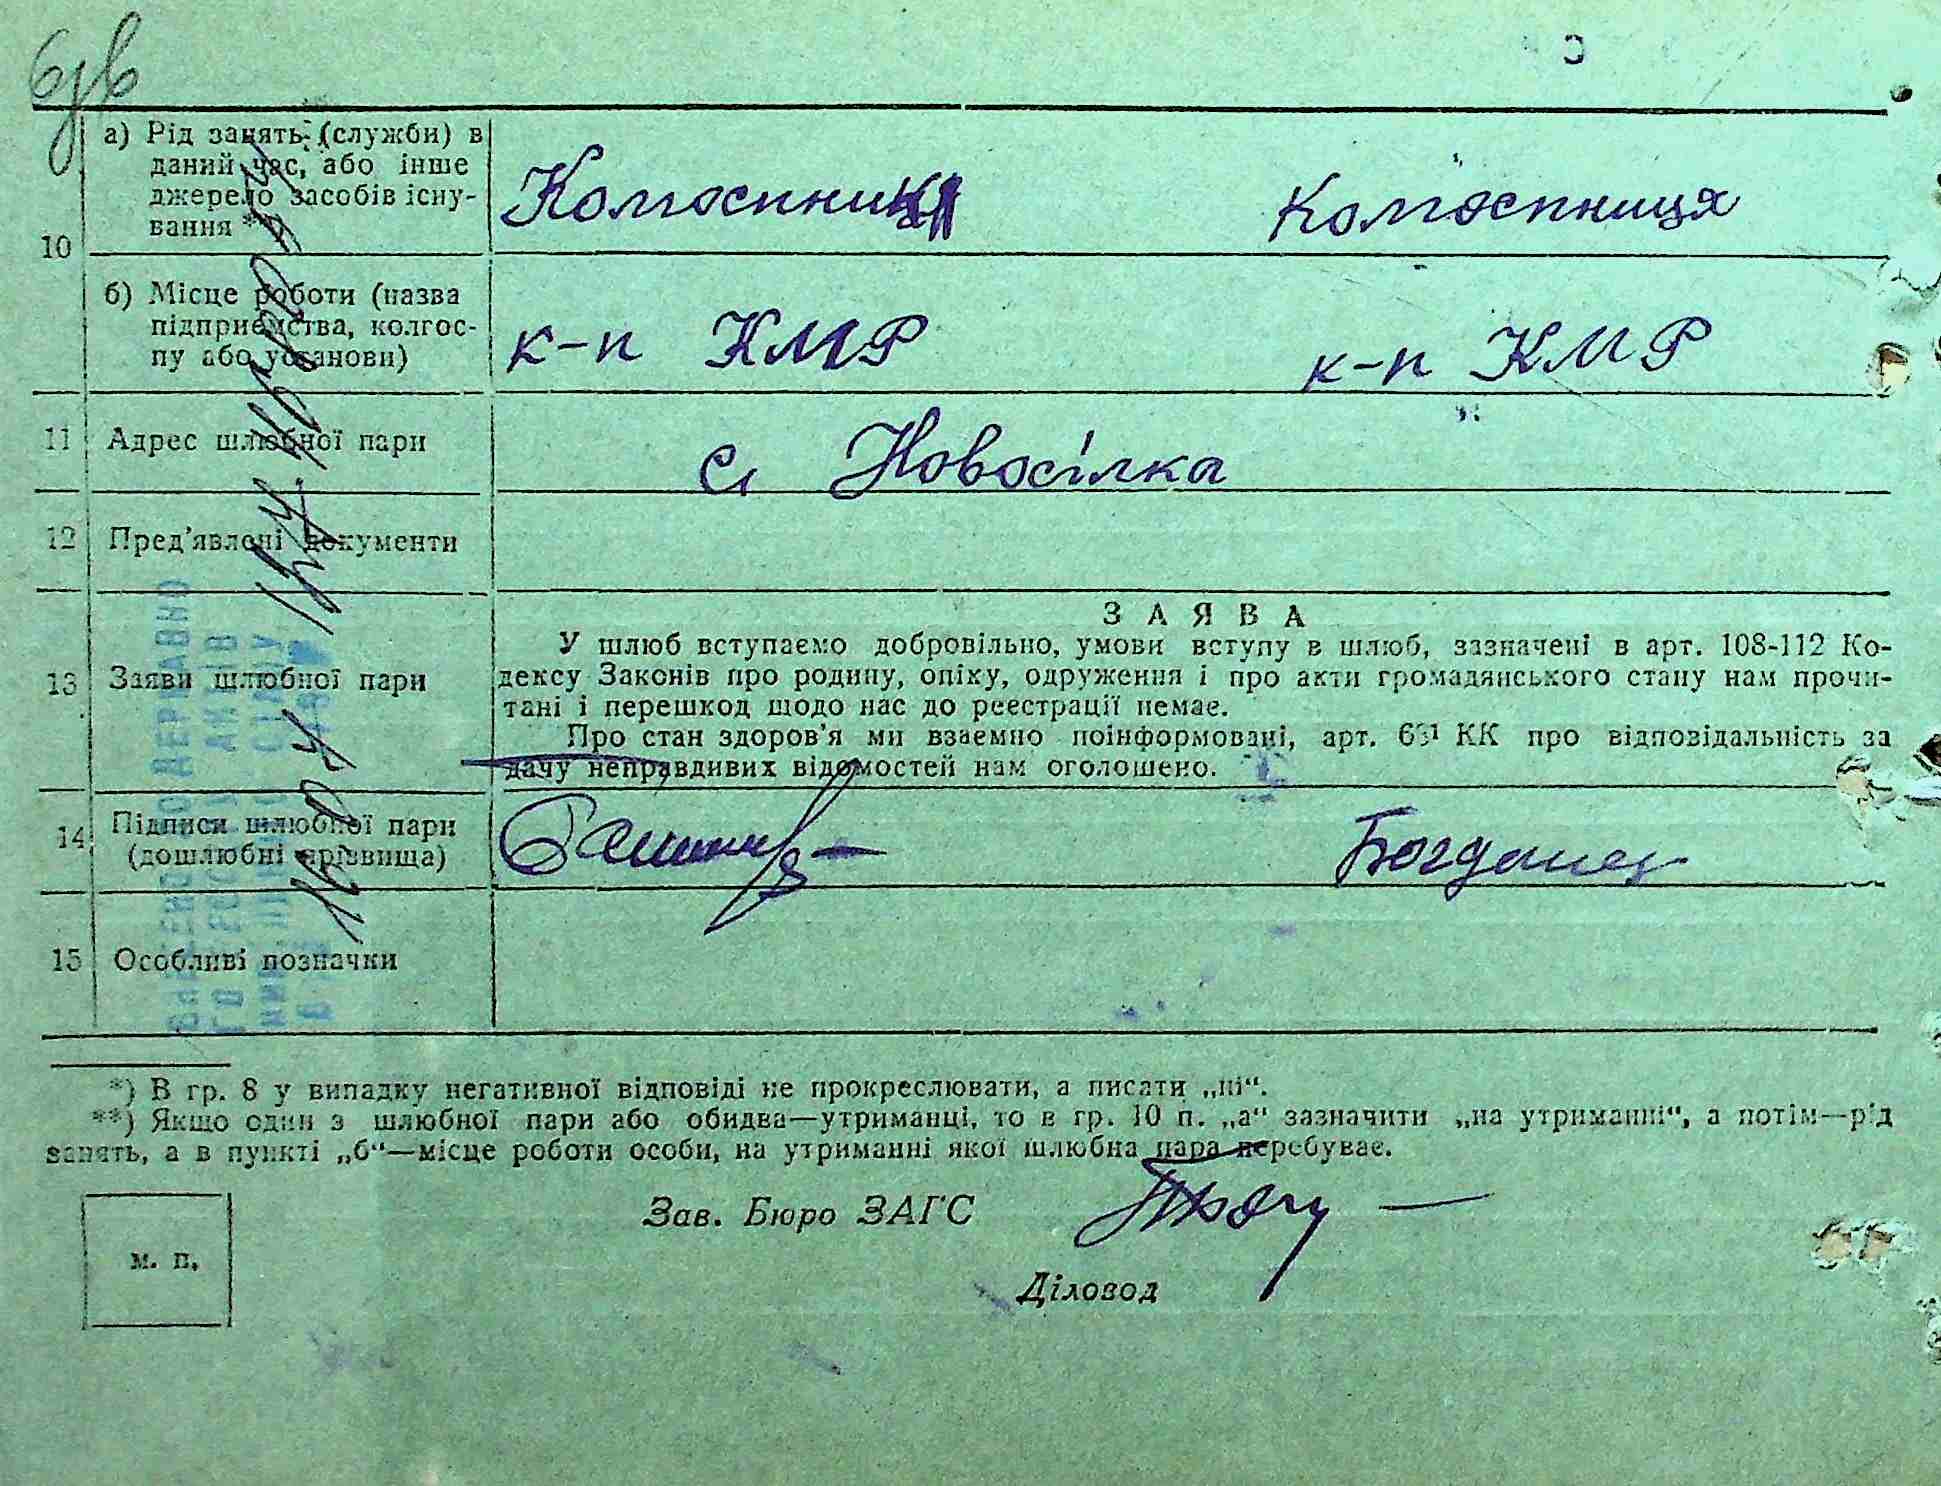 10
а) Рід занять (служби) в
даний час, або інше
джерело засобів існу-
вання **)
Колгоспник
Колгоспниця
б) Місце роботи (назва
підприємства, колгос-
пу або установи)
к-п КМР
к-п КМР
11
Адрес шлюбної пари
с Новосілка
12
Пред'явлені документи
13
Заяви шлюбної пари
ЗАЯВА
У шлюб вступаємо добровільно, умови вступу в шлюб, зазначені в арт. 108-112 Ко-
дексу Законів про родину, опіку, одруження і про акти громадянського стану нам прочи-
тані і перешкод щодо нас до реєстрації немає.
Про стан здоров'я ми взаємно поінформовані, арт. 65¹ КК про відповідальність за
дачу неправдивих відомостей нам оголошено.
14
Підписи шлюбної пари
(дошлюбні прізвища)
Богданец
15
Особливі позначки
*) В гр. 8 у випадку негативної відповіді не прокреслювати, а писати „ні“.
**) Якщо один з шлюбної пари або обидва—утриманці, то в гр. 10 п. „а“ зазначити „на утриманні“, а потім—рід
занять, а в пункті „б“—місце роботи особи, на утриманні якої шлюбна пара перебуває.
Зав. Бюро ЗАГС
м. п.
Діловод